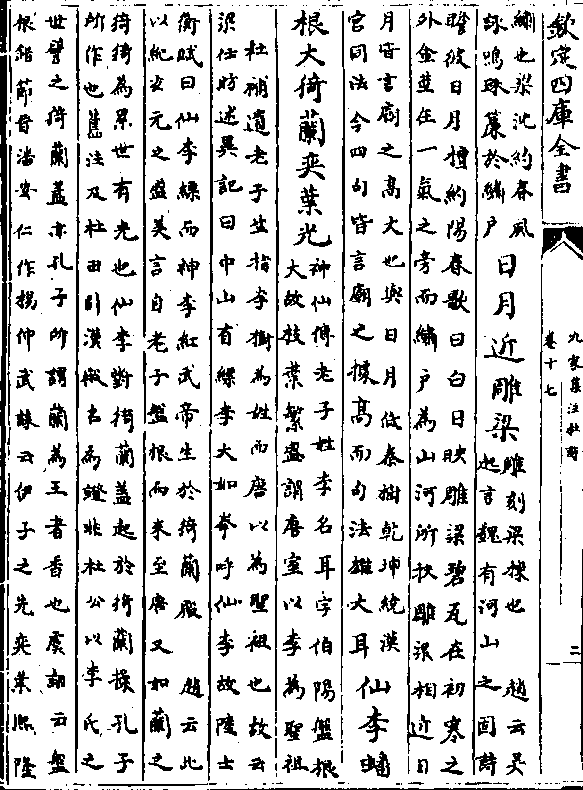 欽定四庫全書
九家集注杜詩
卷十七
二
繡也梁沈約春風
詠鳴珠簾於繡戶
日月近雕梁
雕刻梁棟也 趙云吳
起言魏有河山之固詩
瞻彼日月擅約陽春歌曰白日映雕梁碧瓦在初寒之
外金莖在一氣之旁而繡戶為山河所扶雕梁相近日
月皆言廟之高大也與日月低秦樹乾坤繞漢
宮同法今四句皆言廟之據高而句法雄大耳
仙李蟠
根大猗蘭奕葉光
神仙傳老子姓李名耳字伯陽盤根
大故枝葉繁盛謂唐室以李為聖祖
杜補遺老子生指李樹為姓而唐以為聖祖也故云
梁任昉述異記曰中山有縹李大如拳呼仙李故陸士
衡賦曰仙李縹而神李紅武帝生於猗蘭殿 趙云此
以紀玄元之盛美言自老子盤根而來至唐又如蘭之
猗猗為累世有光也仙李對猗蘭蓋起於猗蘭操孔子
所作也舊注及杜田引漢殿名為證非杜公以李氏之
世譬之猗蘭蓋亦孔子所謂蘭為王者香也虞詡云盤
根錯節晉潘安仁作楊仲武誄云伊子之先奕葉熙隆